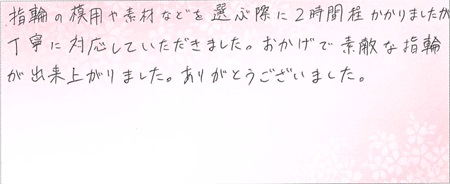 指輪の模用や素材などを選ぶ際に2時間程かかりましたが
丁寧に対応していただきました。おかげで素敵な指輪
が出来上がりました。ありがとうございました。